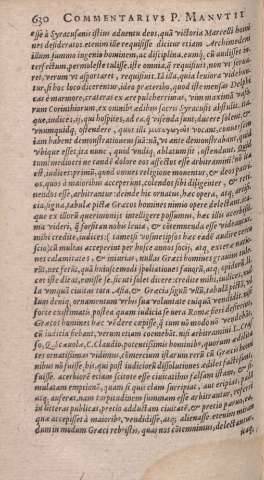 630 COMMENTARIVS P. MANVTII
esse à Syracusanis istius aduentu deos, quã victoria Marcelli homi
nes desideratos. etenim ille requisisse dicitur etiam Archimedem
illum summo ingenio hominem, ac disciplina, eumq́; cũ audisset in-
terfectum, permoleste tulisse. iste omnia, quæ requisiuit, non vt serua-
ret, verum vt asportaret, requisiuit. Iã illa, quia leuiora videbun
tur, si hoc loco dicerentur, ideo præteribo, quod iste mensas Delphi
cas è marmore, crateras ex ære pulcherrimas, vim
rum Corinthiorum, ex omnibus ædibus sacris Syracusis abstulit. ita
que, iudices, ij, qui hospites, ad ea, quæ visenda sunt, ducere solent, &
vnumquidq́; ostendere, quos illi vocant, conuersam
iam habent demonstrationem suam. nam, vt ante demonstrabant, quid
vbique esset, ita nunc, quid vndiq́; ablatum sit, ostendunt. Quid
tum? mediocri ne tandem dolore eos affectos esse arbitramini? nõ ita
est, iudices: primũ, quòd omnes religione mouentur, & deos patri-
os, quos à maioribus acceperunt, colendos sibi diligenter,
nendos esse, arbitrantur: deinde hic ornatus, hæc opera, atq́; artifi-
cia, signa, tabulæ pictæ Græcos homines nimio opere delectant. ita-
que ex illorũ querimonijs intelligere possumus, hæc illis acerbissi-
ma videri, quæ forsitan nobis leuia, & cõtemnenda esse videantur.
mihi credite, iudices: (tametsi vosmetipsos hæc eadẽ audire certo
scio) cũ multas acceperint per hosce annos socij, atq́; exteræ natio-
nes calamitates, & iniurias, nullas Græci homines grauius
rũt, nec ferũt, quã huiuscemodi spoliationes fanorũ, atq́;
cet iste dicat, emisse se, sicut solet dicere: credite mihi, iudices,
la vmquã ciuitas tota Asia, & Græcia signũ vllũ, tabulã pictã,
lum deniq́; ornamentum vrbis sua voluntate cuiquã vendidit. nisi
forte existimatis, postea quam iudicia seuera Romæ fieri
Græcos homines hæc vẽdere cœpisse, quæ tum nõ modo nõ vendebãt,
cũ iudicia fiebant, verum etiam coemebãt. nisi arbitramini L.
so, Q. Scæuola, C. Claudio, potentissimis hominibus, quorum ædilita
tes ornatissimas vidimus, cõmercium istarum rerũ cũ Græcis homi-
nibus nõ fuisse, ijs, qui post iudiciorũ dissolutionem ædiles facti
fuisse. acerbiorẽ etiam scitote esse ciuitatibus falsam istam, & si-
mulatam emptionẽ, quàm si quis clam surripiat, aut eripiat,
atq́; auferat. nam turpitudinem summam esse arbitrantur, referri
in litteras publicas, pretio adductam ciuitatẽ, & pretio paruo, ea,
quæ accepisset à maioribus, vendidisse, atq́; alienasse. etenim
dum in modum Græci rebus istis, quas nos cõtemnimus, delectantur.